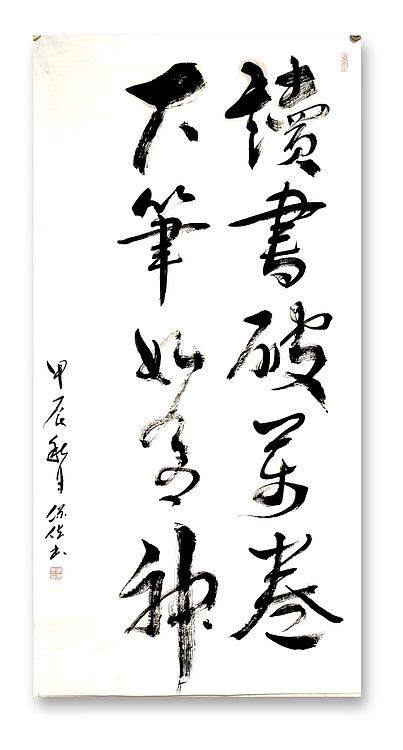 讀書破萬卷
下筆如有神
甲辰秋月 书